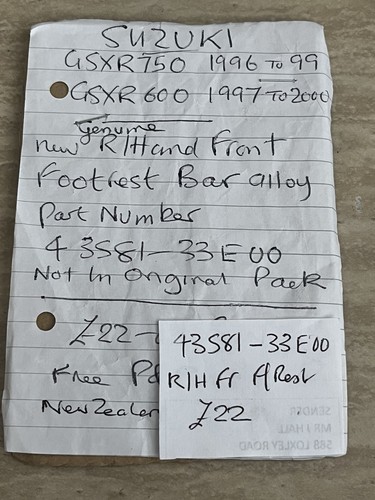 SUZUKI
GSXR750 1996 TO 99
GSXR 600 1997 TO 2000
Genuine
new R/Hand Front
Footrest Bar alloy
Part Number
43581-33E00
Not In Original Pack
£22-
Free
43581-33E00
R/H Fr F/Rest
£22
SENDER
MR I HALL
588 LOXLEY ROAD